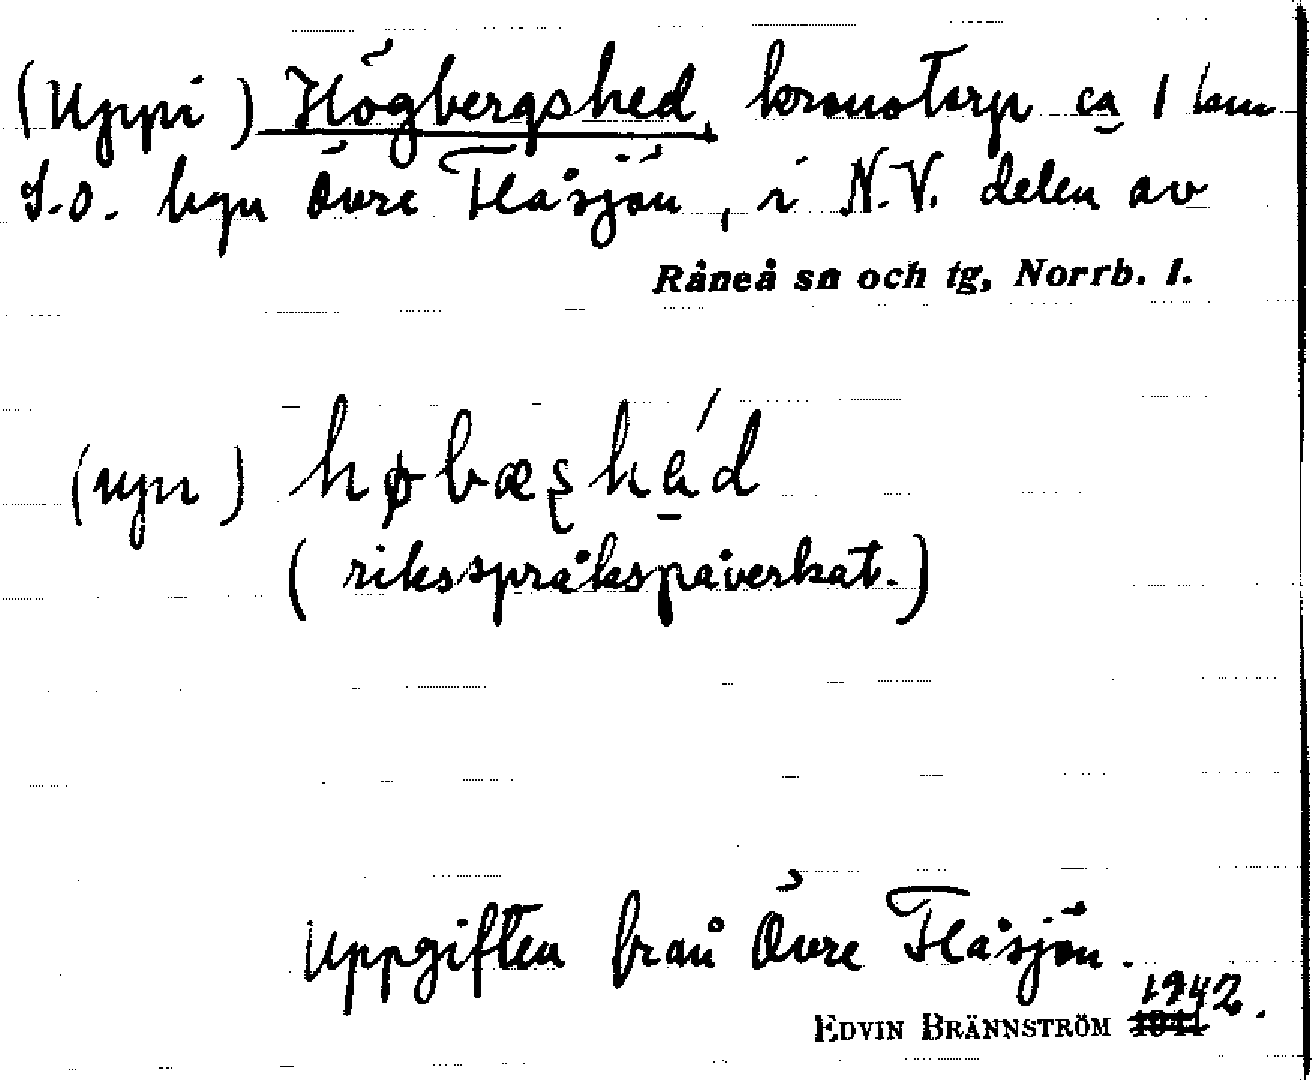 (Uppi) Högbergshed, kronotorp ca 1 km
S.O. byn Övre Flåsjön, i N.V. delen av
Råneå sn och tg, Norrb. l.
(upn)
(riksspråkspåverkat.)
Uppgiften från Övre Flåsjön.
1942.
EDVIN BRÄNNSTRÖM 1941